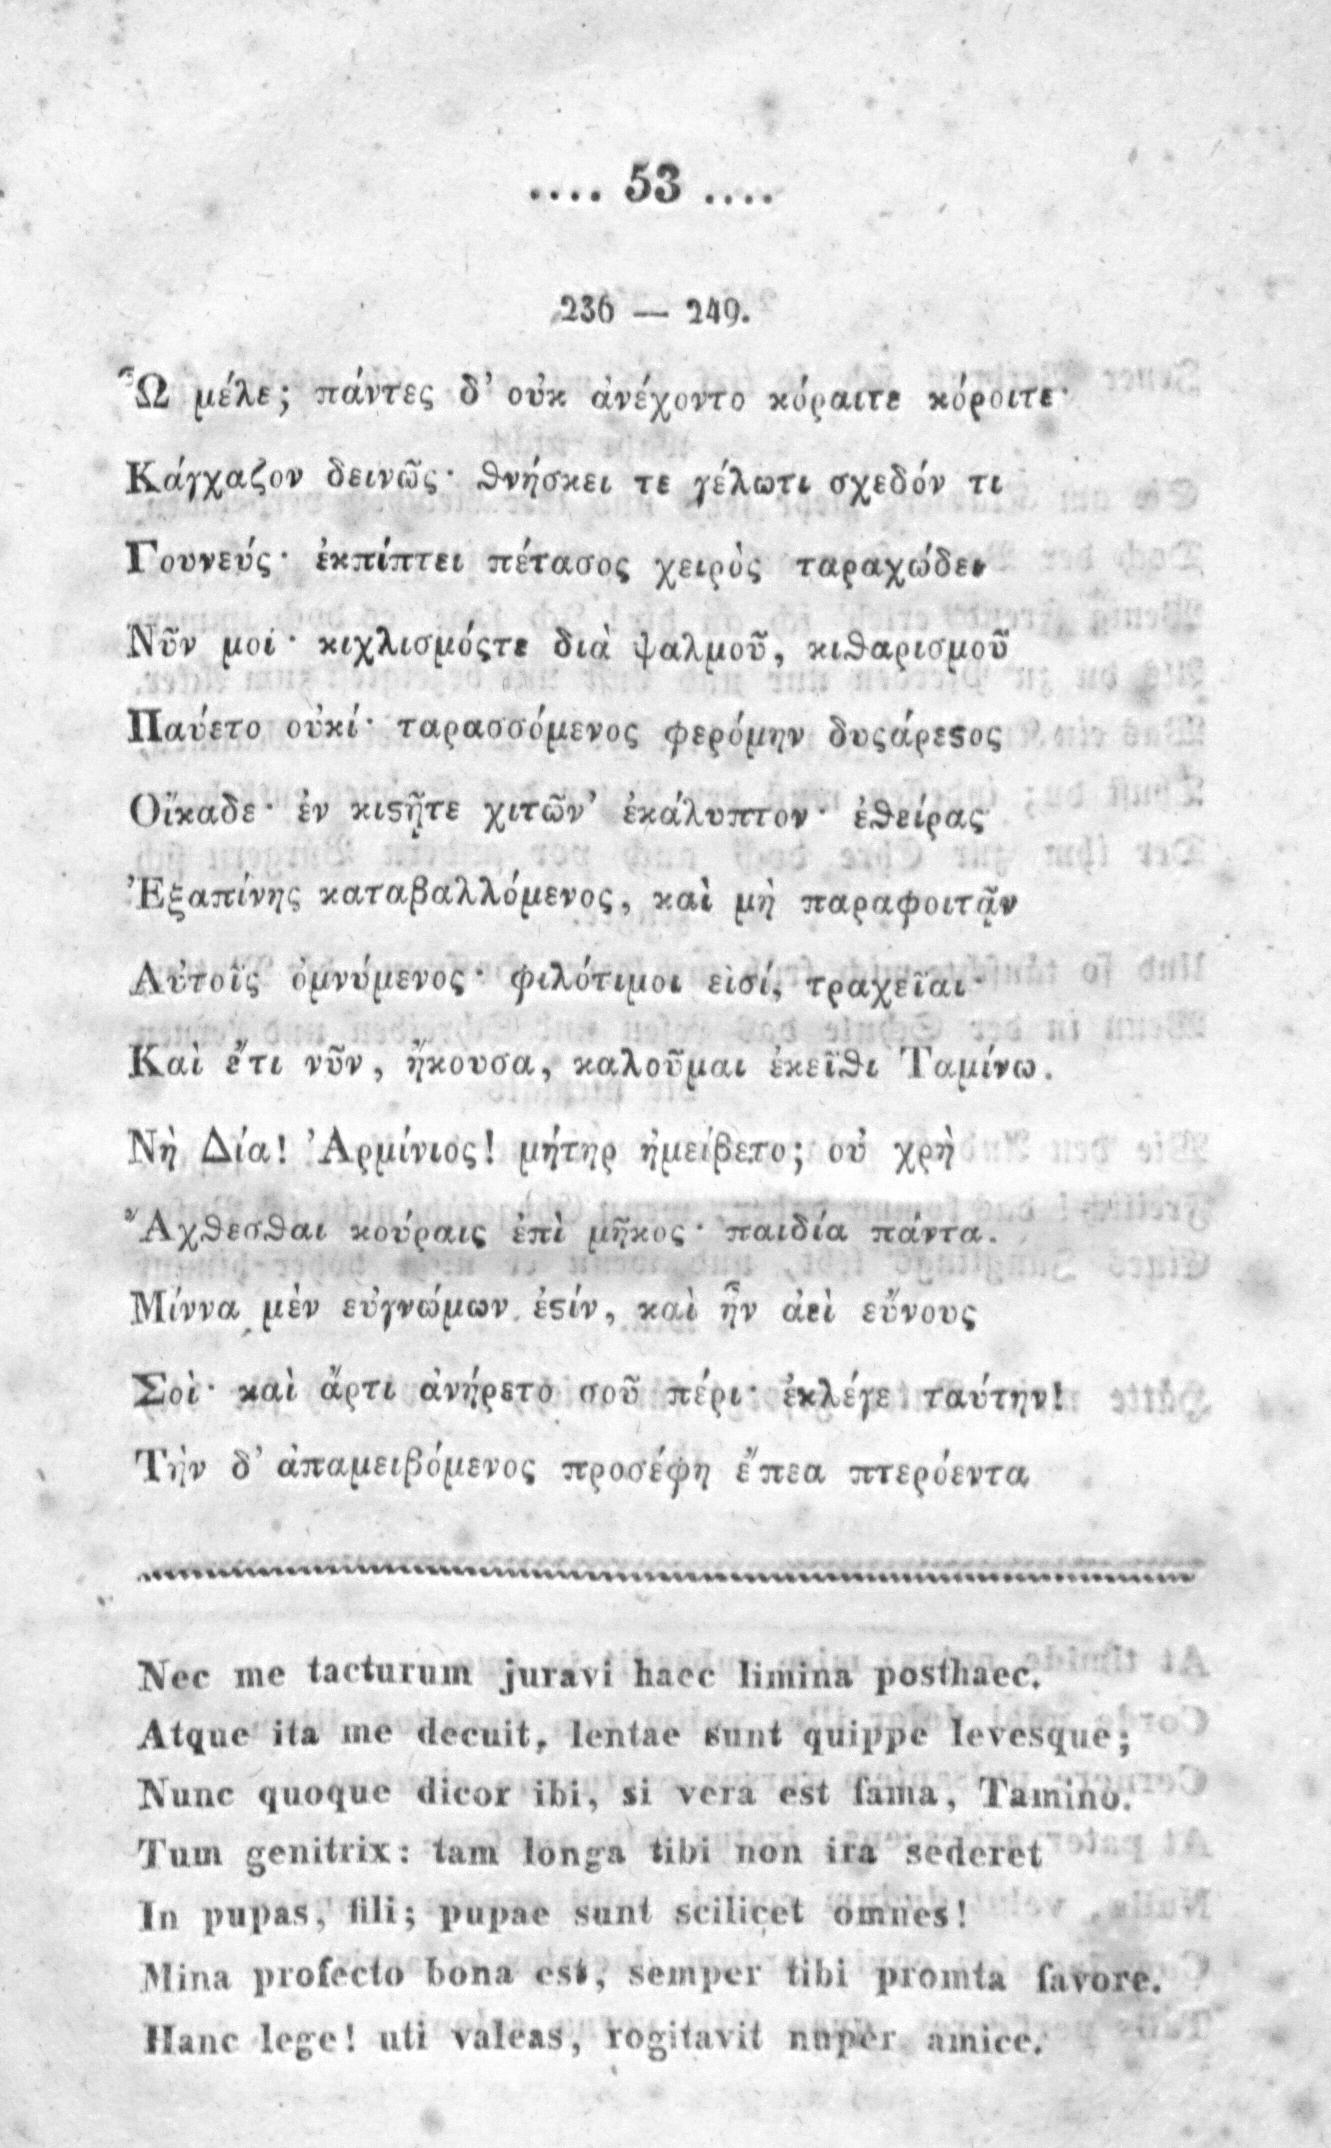 .... 53 ....
236 — 249.
Ὦ μέλε; πάντες δ' οὐκ ἀνέχοντο κόραιτε κόροιτε·
Κάγχαζον δεινῶς· θνήσκει τε γέλωτι σχεδόν τι
Γουνεύς· ἐκπίπτει πέτασος χειρὸς ταραχώδει
Νῦν μοι· κιχλισμόςτε διὰ ψαλμοῦ, κιθαρισμοῦ
Παύετο οὐκί· ταρασσόμενος φερόμην δυςάρεϛος
Οἴκαδε· ἐν κιϛῇτε χιτῶν' ἐκάλυπτον· ἐθείρας
Ἐξαπίνης καταβαλλόμενος, καὶ μὴ παραφοιτᾷν
Αὐτοῖς ὀμνύμενος· φιλότιμοι εἰσί, τραχεῖαι·
Καὶ ἔτι νῦν, ἤκουσα, καλοῦμαι ἐκεῖθι Ταμίνω.
Νὴ Δία! Ἀρμίνιος! μήτηρ ἠμείβετο; οὐ χρὴ
Ἄχθεσθαι κούραις ἐπὶ μῆκος· παιδία πάντα.
Μίννα μὲν εὐγνώμων ἐϛίν, καὶ ἦν ἀεὶ εὔνους
Σοὶ· καὶ ἄρτι ἀνήρετο σοῦ πέρι· ἐκλέγε ταύτην!
Τὴν δ' ἀπαμειβόμενος προσέφη ἔπεα πτερόεντα
Nec me tacturum juravi haec limina posthaec.
Atque ita me decuit, lentae sunt quippe levesque;
Nunc quoque dicor ibi, si vera est fama, Tamino.
Tum genitrix: tam longa tibi non ira sederet
In pupas, fili; pupae sunt scilicet omnes!
Mina profecto bona est, semper tibi promta favore.
Hanc lege! uti valeas, rogitavit nuper amice.